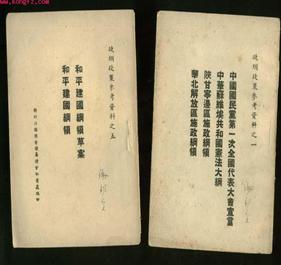 www.kongfz.com
政綱政策參考資料之一
中國國民黨第一次全國代表大會宣言
中華蘇維埃共和國憲法大綱
陝甘寧邊區施政綱領
華北解放區施政綱領
政綱政策參考資料之五
和平建國綱領草案
和平建國綱領